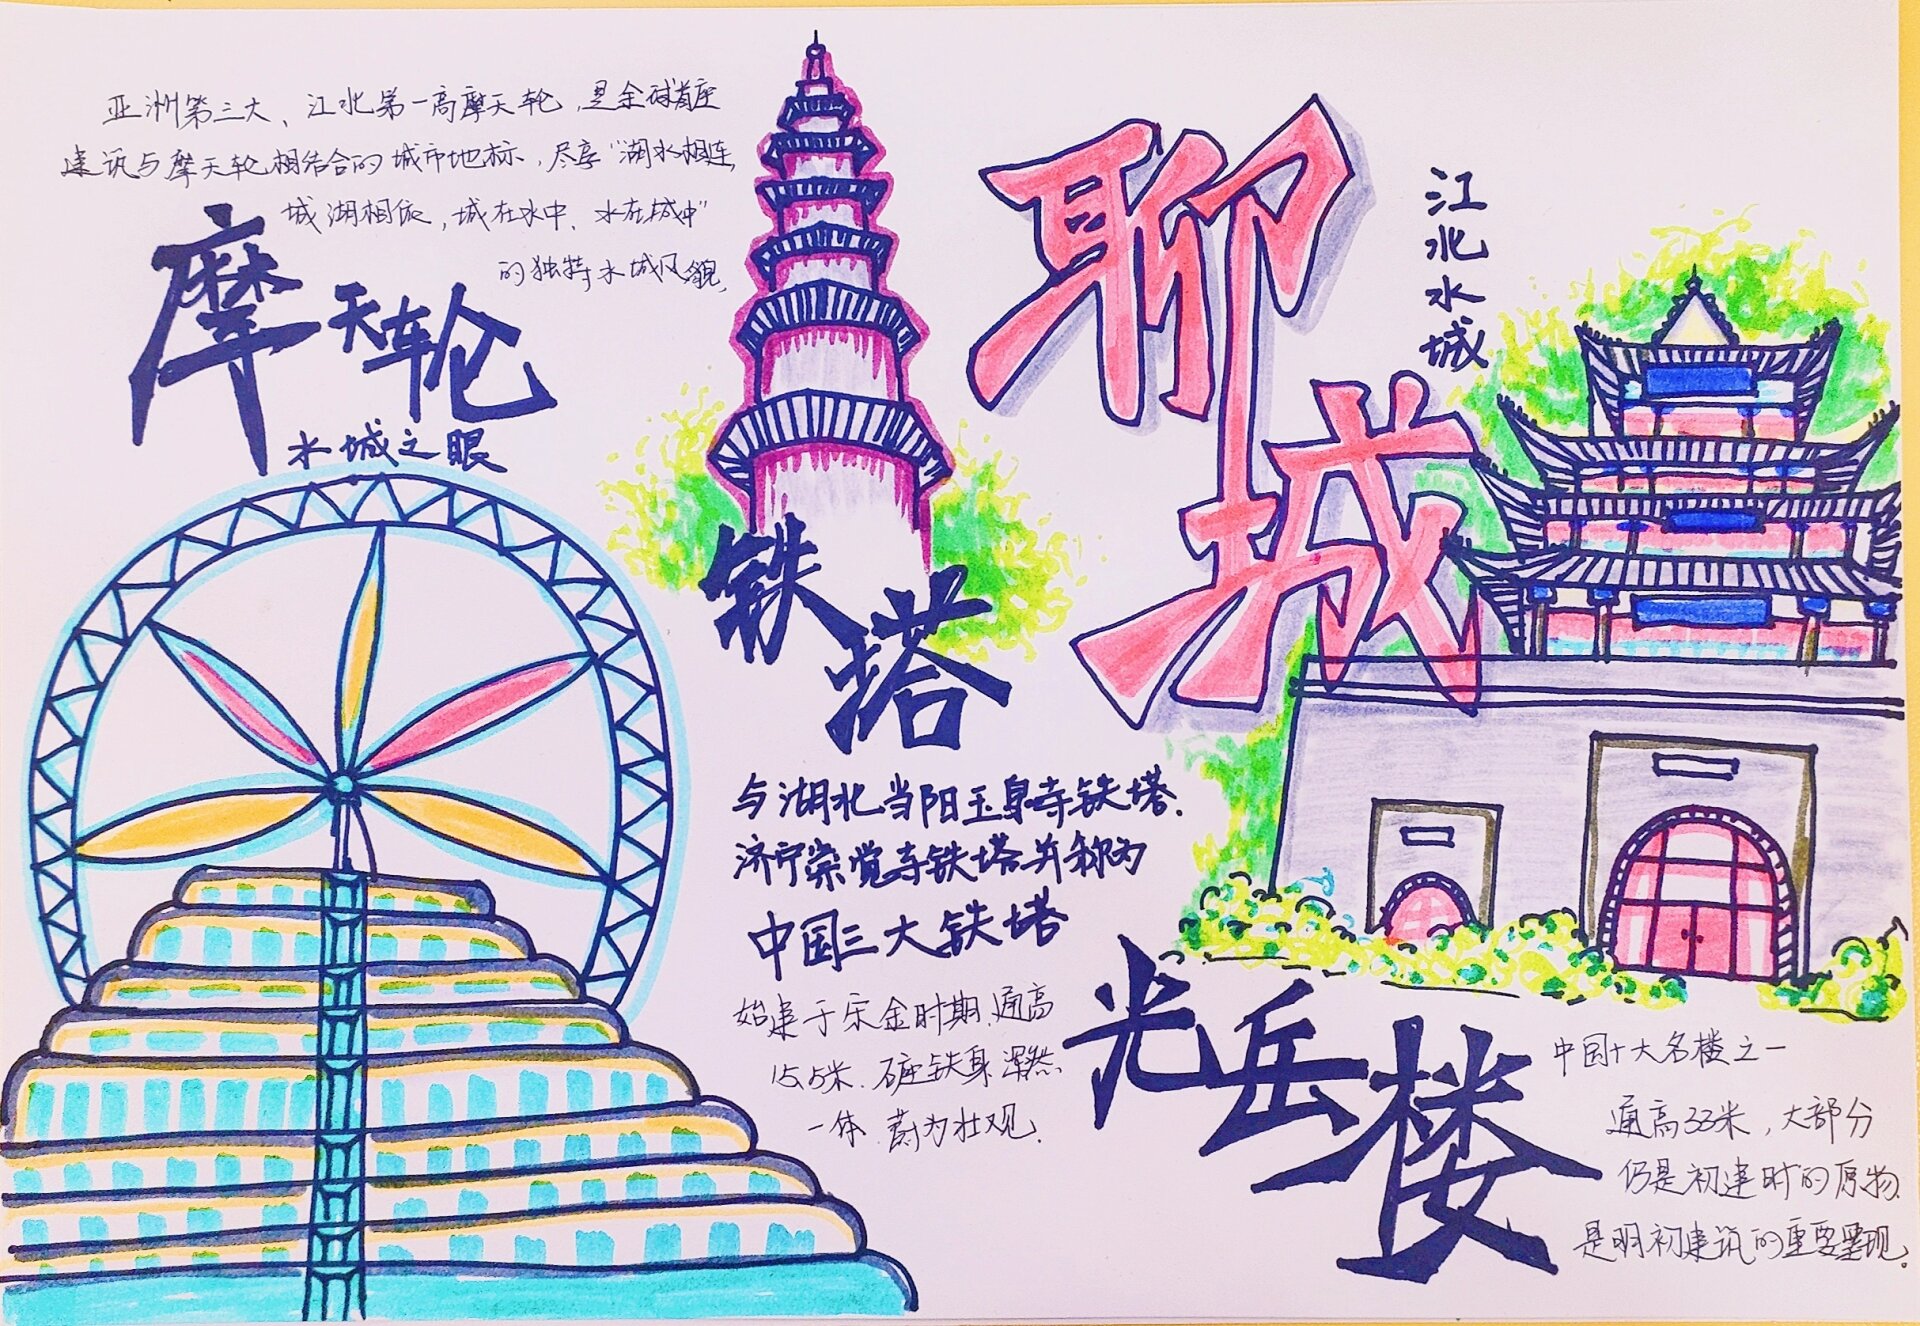 亚洲第三大、江北第一高摩天轮,是全球首座
建筑与摩天轮相结合的城市地标,尽享"湖水相连
城湖相依,城在水中、水在城中"
的独特水城风貌,
摩天轮
水城之眼
铁塔
与湖北当阳玉泉寺铁塔.
济宁崇觉寺铁塔并称为
中国三大铁塔
始建于宋金时期.通高
15.5米.砖铁身浑然
一体.蔚为壮观.
聊城
江北水城
光岳楼
中国十大名楼之一
通高33米,大部分
仍是初建时的原物
是明初建筑的重要